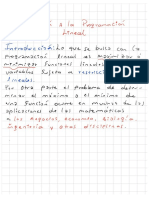 a la Programación
Lineal
Introducción: Lo que se busca con la
programación lineal es maximizar o
minimizar funciones lineales
variables sujeta a restricciones
lineales.
Por otra parte el problema de deter-
minar el máximo o el mínimo de
una función surge en muchas de las
aplicaciones de las matemáticas
a los negocios, economía, biología,
ingeniería y otras disciplinas.